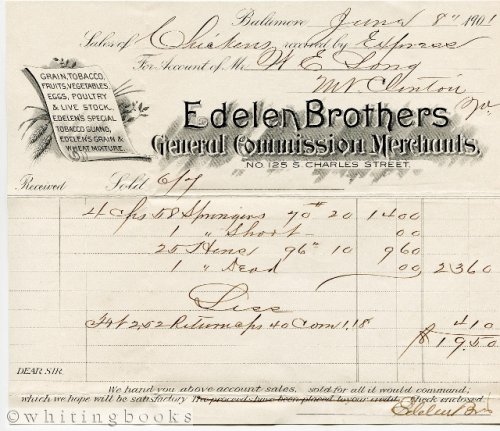 Baltimore, June 8" 190
Sales of Chickens received by Express
For Account of Mr. W E Long
Mt Clinton
Va.
GRAIN, TOBACCO,
FRUITS, VEGETABLES
EGGS, POULTRY
& LIVE STOCK.
EDELEN'S SPECIAL
TOBACCO GUANO,
EDELEN'S GRAIN &
WHEAT MIXTURE.
Edelen Brothers
General Commission Merchants,
NO. 125 S. CHARLES STREET.
Received Sold 6/7
4 Cps 58 Springers 70# 20 14 00
1 " Short 00
25 Hens 96" 10 9 60
1 " Dead 00 23 60
Less
Frt 2.52 Return cps 40 Com 1.18 4 10
$ 19.50
DEAR SIR.
We hand you above account sales, sold for all it would command,
which we hope will be satisfactory no proceeds have been placed to your credit. Check enclosed
Edelen Bros
©whitingbooks